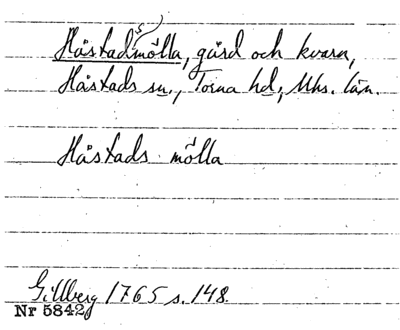 Håstadsmölla, gård och kvarn,
Håstads sn., Torna hd, Mhs. län.
Håstads mölla
Gillberg 1765 s. 148.
Nr 5842